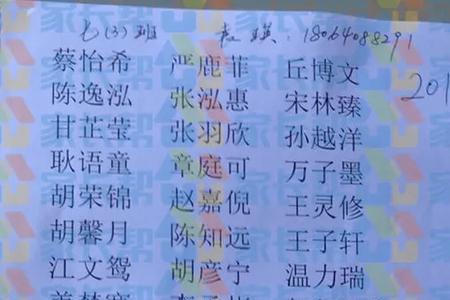 七(3)班 袁瑛:18064088291
蔡怡希 严鹿菲 丘博文
陈逸泓 张泓惠 宋林臻
201
甘芷莹 张羽欣 孙越洋
耿语童 章庭可 万子墨
胡荣锦 赵嘉倪 王灵修
胡馨月 陈知远 王子轩
江文鸳 胡彦宁 温力瑞